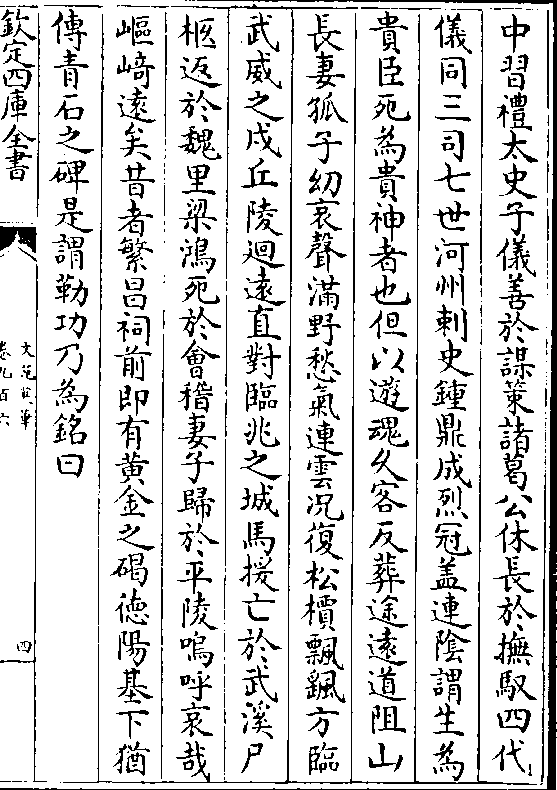 中習禮太史子儀善於謀策諸葛公休長於撫馭四代
儀同三司七世河州刺史鍾鼎成烈冠盖連陰謂生為
貴臣死為貴神者也但以遊魂久客反葬途遠道阻山
長妻孤子幼哀聲滿野愁氣連雲况復松檟飄颻方臨
武威之戍丘陵迴遠直對臨兆之城馬援亡於武溪尸
柩返於魏里梁鴻死於會稽妻子歸於平陵嗚呼哀哉
嶇﨑遠矣昔者繁昌祠前即有黄金之碣德陽基下猶
傳青石之碑是謂勒功乃為銘曰
欽定四庫全書
文苑英華
卷九百六
四